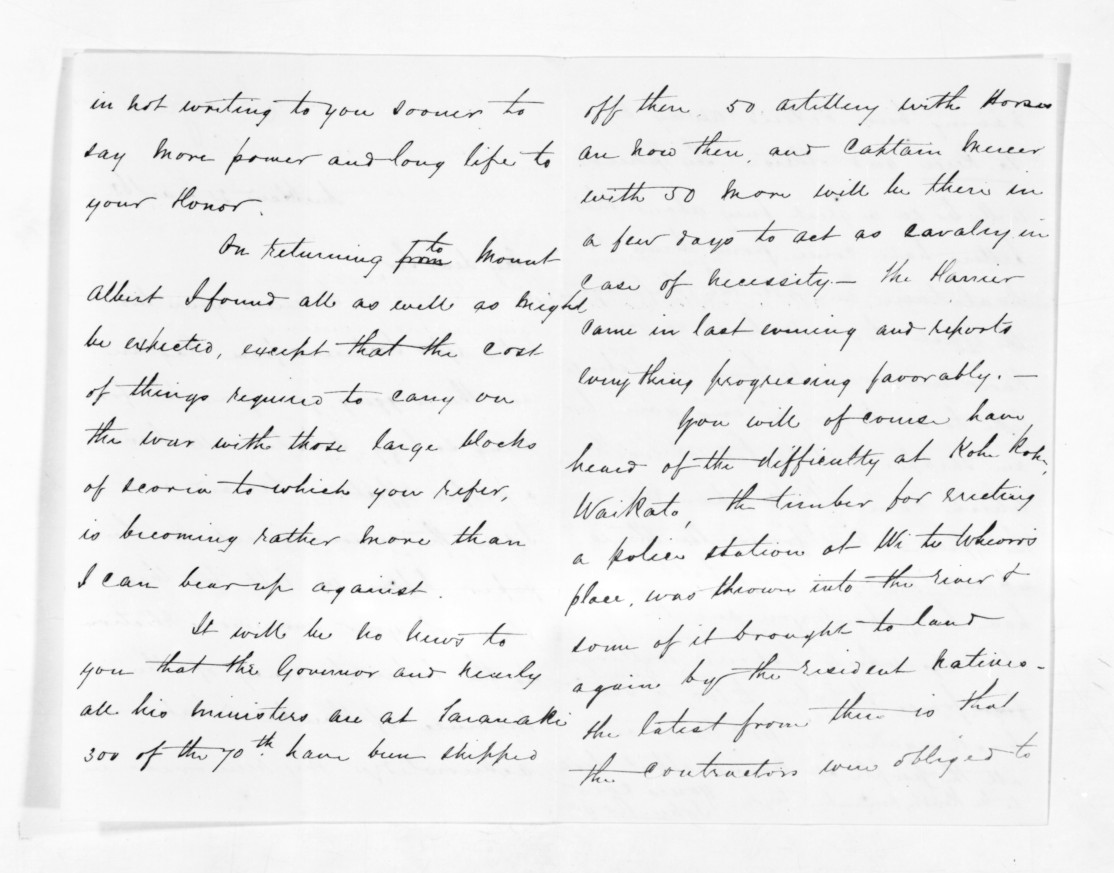 in not writing to you sooner to
say more power and long life to
your Honor.
On returning from to Mount
Albert I found all as well as might
be expected, except that the cost
of things required to carry on
the war with those large blocks
of scoria to which you refer,
is becoming rather more than
I can bear up against.
It will be no news to
you that the Governor and nearly
all his ministers are at Taranaki
300 of the 70th have been shipped
off there. 50 artillery with Horses
are now there, and Captain Mercer
with 50 more will be there in
a few days to act as cavalry in
case of necessity. — The Harrier
came in last evening and reports
everything progressing favorably. —
You will of course have
heard of the difficulty at Kohe Kohe,
Waikato, the timber for erecting
a police station at Wi te Wheoro's
place, was thrown into the river &
some of it brought to land
again by the resident natives -
the latest from there is that
the contractors were obliged to